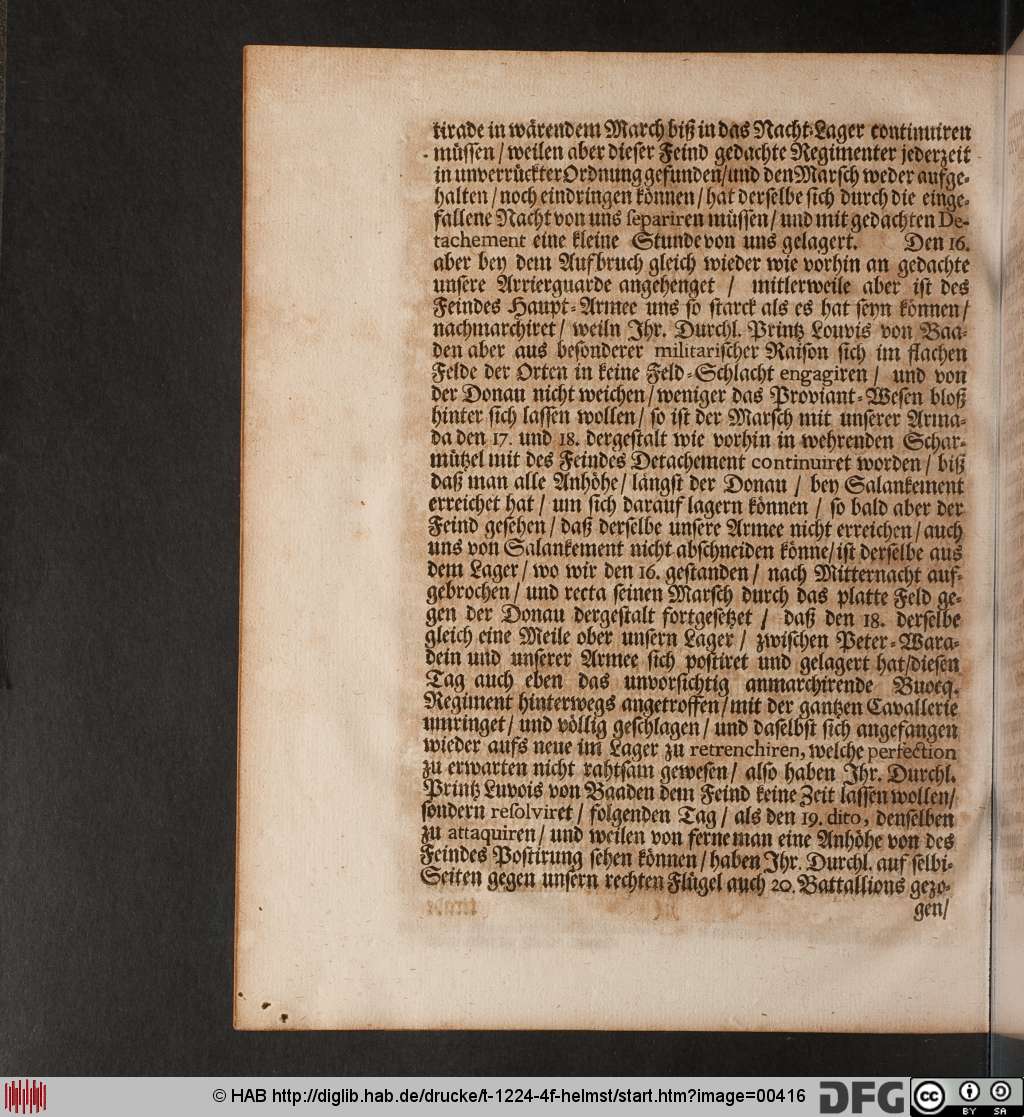 tirade in wärendem March biß in das Nacht-Lager continuiren
müssen / weilen aber dieser Feind gedachte Regimenter jederzeit
in unverrückter Ordnung gefunden/und den Marsch weder aufge-
halten / noch eindringen können / hat derselbe sich durch die einge-
fallene Nacht von uns separiren müssen / und mit gedachten De-
tachement eine kleine Stunde von uns gelagert. Den 16.
aber bey dem Aufbruch gleich wieder wie vorhin an gedachte
unsere Arrierguarde angehenget / mitlerweile aber ist des
Feindes Haupt-Armee uns so starck als es hat seyn können /
nachmarchiret / weiln Ihr. Durchl. Printz Louvis von Baa-
den aber aus besonderer militarischer Raison sich im flachen
Felde der Orten in keine Feld-Schlacht engagiren / und von
der Donau nicht weichen / weniger das Proviant-Wesen bloß
hinter sich lassen wollen / so ist der Marsch mit unserer Arma-
da den 17. und 18. dergestalt wie vorhin in wehrenden Schar-
mützel mit des Feindes Detachement continuiret worden / biß
daß man alle Anhöhe / längst der Donau / bey Salankement
erreichet hat / um sich darauf lagern können / so bald aber der
Feind gesehen / daß derselbe unsere Armee nicht erreichen / auch
uns von Salankement nicht abschneiden könne/ist derselbe aus
dem Lager / wo wir den 16. gestanden / nach Mitternacht auf-
gebrochen / und recta seinen Marsch durch das platte Feld ge-
gen der Donau dergestalt fortgesetzet / daß den 18. derselbe
gleich eine Meile ober unsern Lager / zwischen Peter-Wara-
dein und unserer Armee sich postiret und gelagert hat/diesen
Tag auch eben das unvorsichtig anmarchirende Buocq.
Regiment hinterwegs angetroffen / mit der gantzen Cavallerie
umringet / und völlig geschlagen / und daselbst sich angefangen
wieder aufs neue im Lager zu retrenchiren, welche perfection
zu erwarten nicht rahtsam gewesen / also haben Ihr. Durchl.
Printz Luvois von Baaden dem Feind keine Zeit lassen wollen/
sondern resolviret / folgenden Tag / als den 19. dito, denselben
zu attaquiren / und weilen von ferne man eine Anhöhe von des
Feindes Postirung sehen können / haben Ihr. Durchl. auf selbi-
Seiten gegen unsern rechten Flügel auch 20. Battallions gezo-
gen/
© HAB http://diglib.hab.de/drucke/t-1224-4f-helmst/start.htm?image=00416
DFG
cc
BY SA